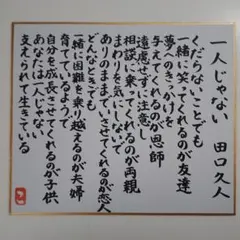 一人じゃない　田口久人
くだらないことでも
一緒に笑ってくれるのが友達
夢へのきっかけを
与えてくれるのが恩師
遠慮せずに注意し
相談に乗ってくれるのが両親
まわりを気にしないで
ありのままでいさせてくれるのが恋人
どんなときでも
一緒に困難を乗り越えるのが夫婦
育てているようで
自分を成長させてくれるのが子供
あなたは一人じゃない
支えられて生きている